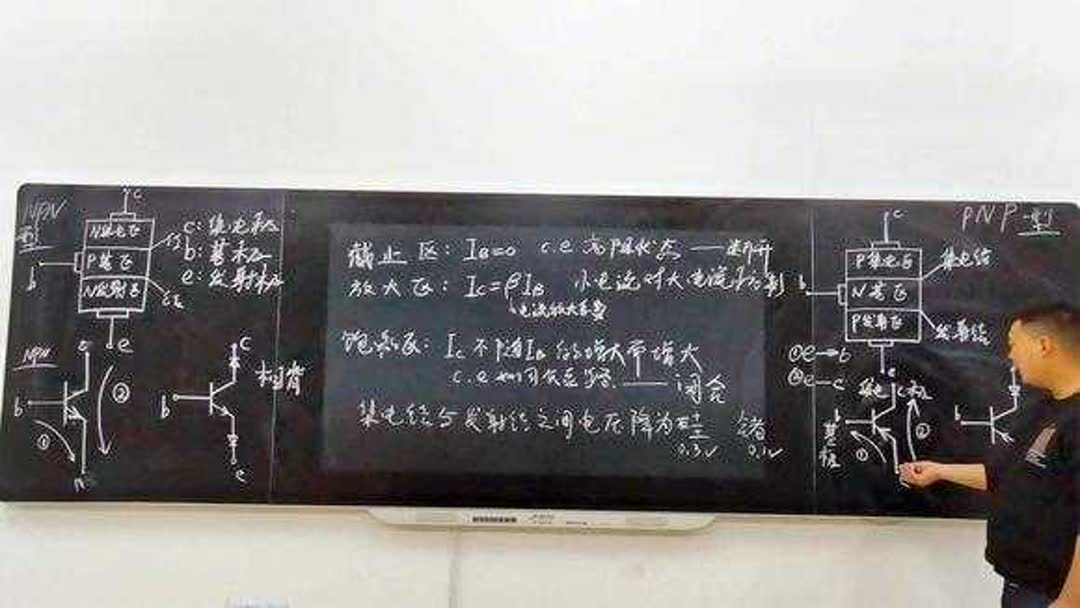 NPN
型
c
N集电区
P基区
N发射区
b
e
c：集电极
b：基极
e：发射极
NPN
b
①
②
c
b
e
相背
截止区：IB=0 c.e 高阻状态——断开
放大区：IC=βIB 小电流对大电流控制
电流放大系数
饱和区：Ic不随IB的增大而增大
c.e 如同短路——闭合
集电结与发射结之间电压降为硅 锗
0.3V 0.1V
PNP型
c
P集电区
N基区
P发射区
b
e
集电结
发射结
①e→b
②e→c
集电极
b
基极
①
②
b